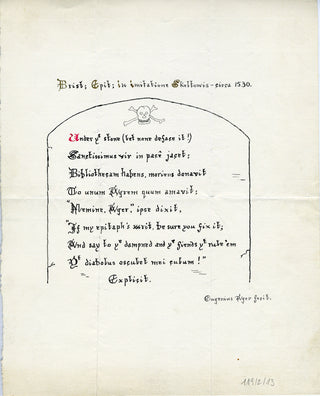 Brist; Epit; in imitatione Skeltonis - circa 1530.
Under yᵉ stone (let none deface it!)
Sanctissimus vir in pace jacet;
Bibliothecam habens, moriens donavit
To unum Ayerem quum amavit;
"Nomine, Ayer," ipse dixit,
"If my epitaph's writ, be sure you fix it;
And say to yᵉ dampned and yᵉ fiends yᵗ rule 'em
Yᵗ diabolus osculet mei culum!"
Explicit.
Eugenius Ayer fecit.
119/2/13